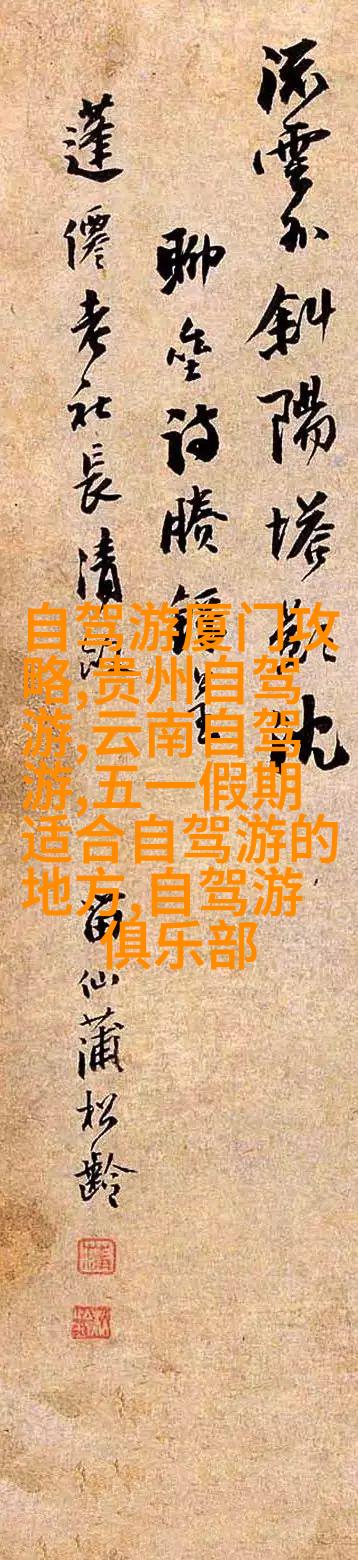 流雲斜陽塔
聊詩
蓬僊老社長清
留仙蒲松齡
自驾游厦门攻
略,贵州自驾
游,云南自驾
游,五一假期
适合自驾游的
地方,自驾游
俱乐部